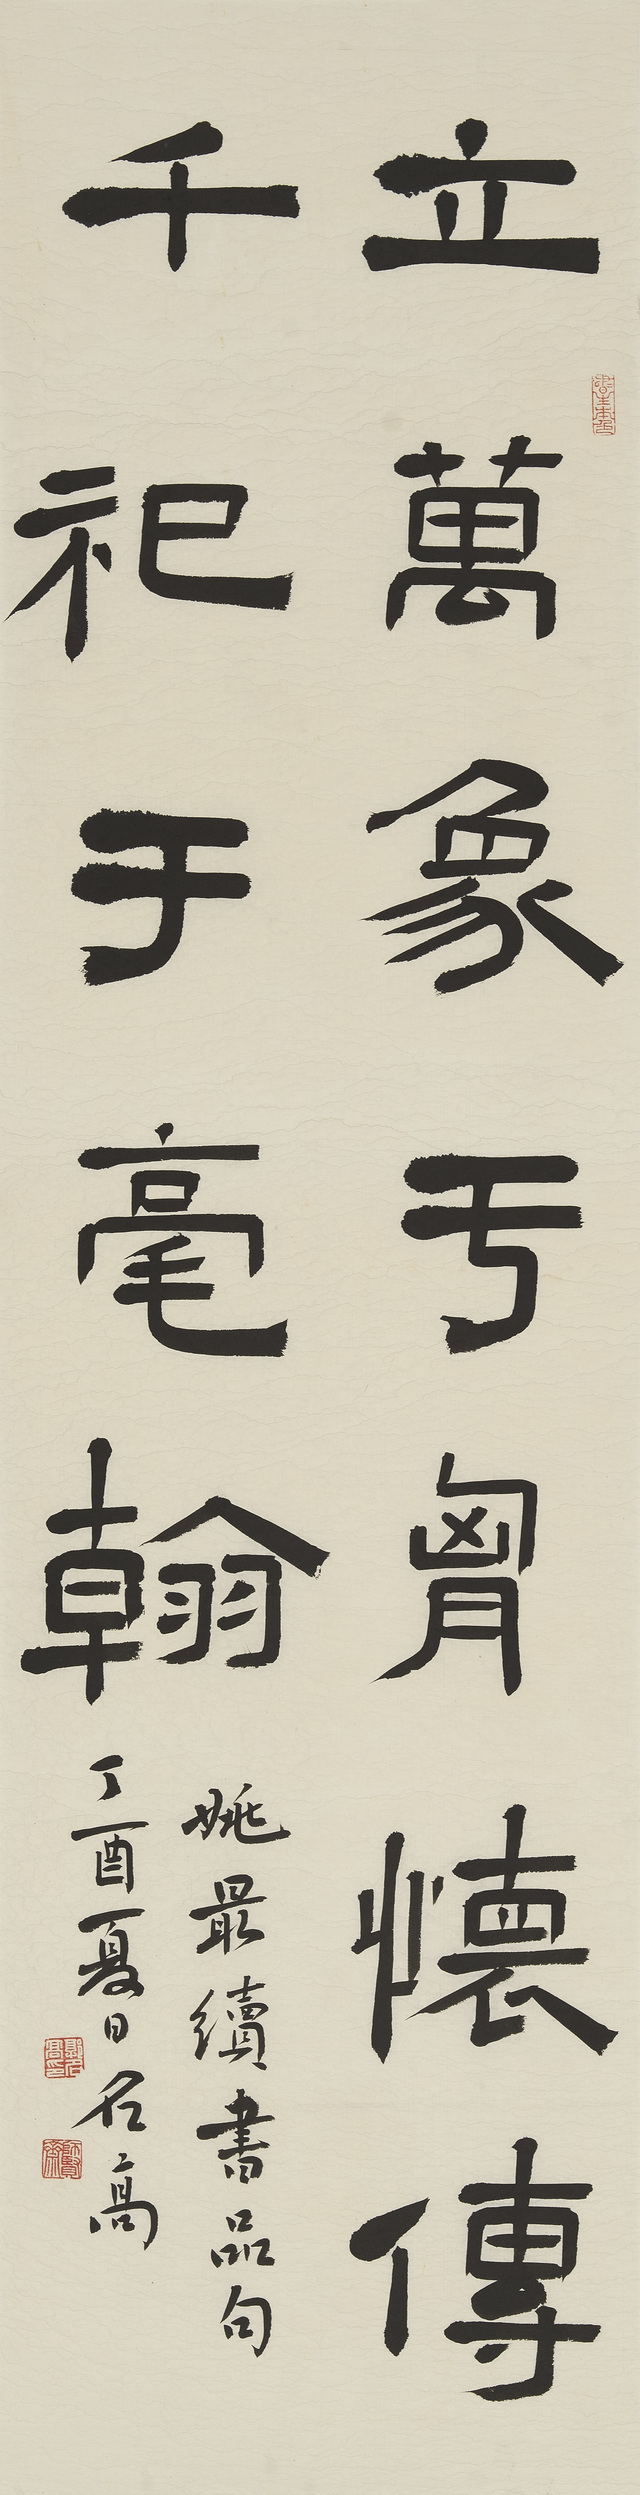 立萬象亐胷懷傳
千祀于毫翰
姚最續書品句
丁酉夏日名高